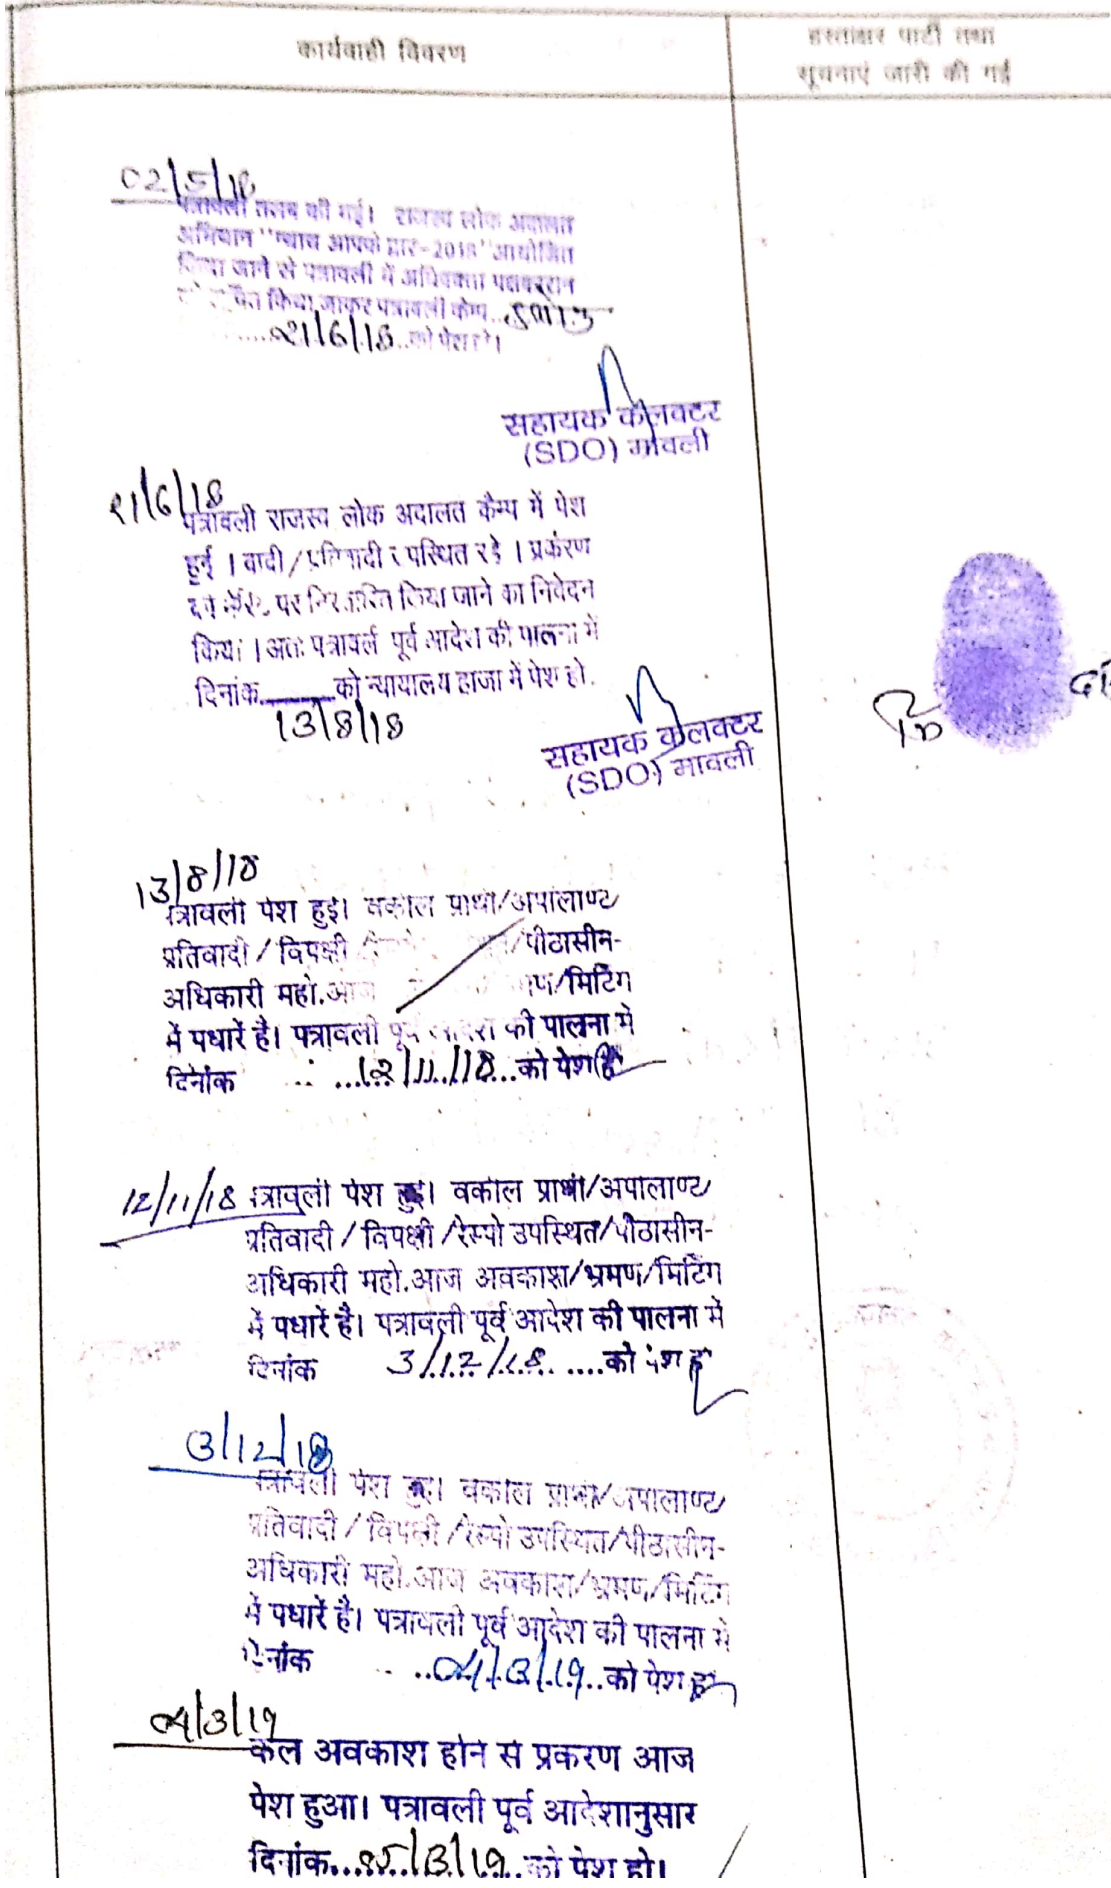 कार्यवाही विवरण
हस्ताक्षर पार्टी तथा
सूचनाएं जारी की गई
02/5/18
पत्रावली तलब की गई। राजस्व लोक अदालत
अभियान "न्याय आपके द्वार-2018" आयोजित
किया जाने से पत्रावली में अधिवक्ता पक्षकारान
को सूचित किया जाकर पत्रावली केम्प..
21/6/18..को पेश हो।
सहायक कलक्टर
(SDO) मावली
21/6/18
पत्रावली राजस्व लोक अदालत कैम्प में पेश
हुई । वादी / प्रतिवादी उपस्थित रहे । प्रकरण
पर निस्तारित किया जाने का निवेदन
किया । अतः पत्रावली पूर्व आदेश की पालना में
दिनांक को न्यायालय हाजा में पेश हो.
13/8/18
सहायक कलक्टर
(SDO) मावली
13/8/18
पत्रावली पेश हुई। वकील प्रार्थी/अपीलाण्ट
प्रतिवादी / विपक्षी /पीठासीन-
अधिकारी महो.आज /मिटिंग
में पधारें है। पत्रावली पूर्व आदेश की पालना में
दिनांक ...12/11/18...को पेश हो
12/11/18 पत्रावली पेश हुई। वकील प्रार्थी/अपीलाण्ट
प्रतिवादी / विपक्षी /रेस्पो उपस्थित/पीठासीन-
अधिकारी महो.आज अवकाश/भ्रमण/मिटिंग
में पधारें है। पत्रावली पूर्व आदेश की पालना में
दिनांक 3/12/18 ....को पेश हो
3/12/18
पत्रावली पेश हुई। वकील प्रार्थी/अपीलाण्ट
प्रतिवादी / विपक्षी /रेस्पो उपस्थित/पीठासीन-
अधिकारी महो.आज अवकाश/भ्रमण/मिटिंग
में पधारें है। पत्रावली पूर्व आदेश की पालना में
दिनांक ..04/3/19..को पेश हो
04/3/19
कल अवकाश होने से प्रकरण आज
पेश हुआ। पत्रावली पूर्व आदेशानुसार
दिनांक...05/3/19..को पेश हो।